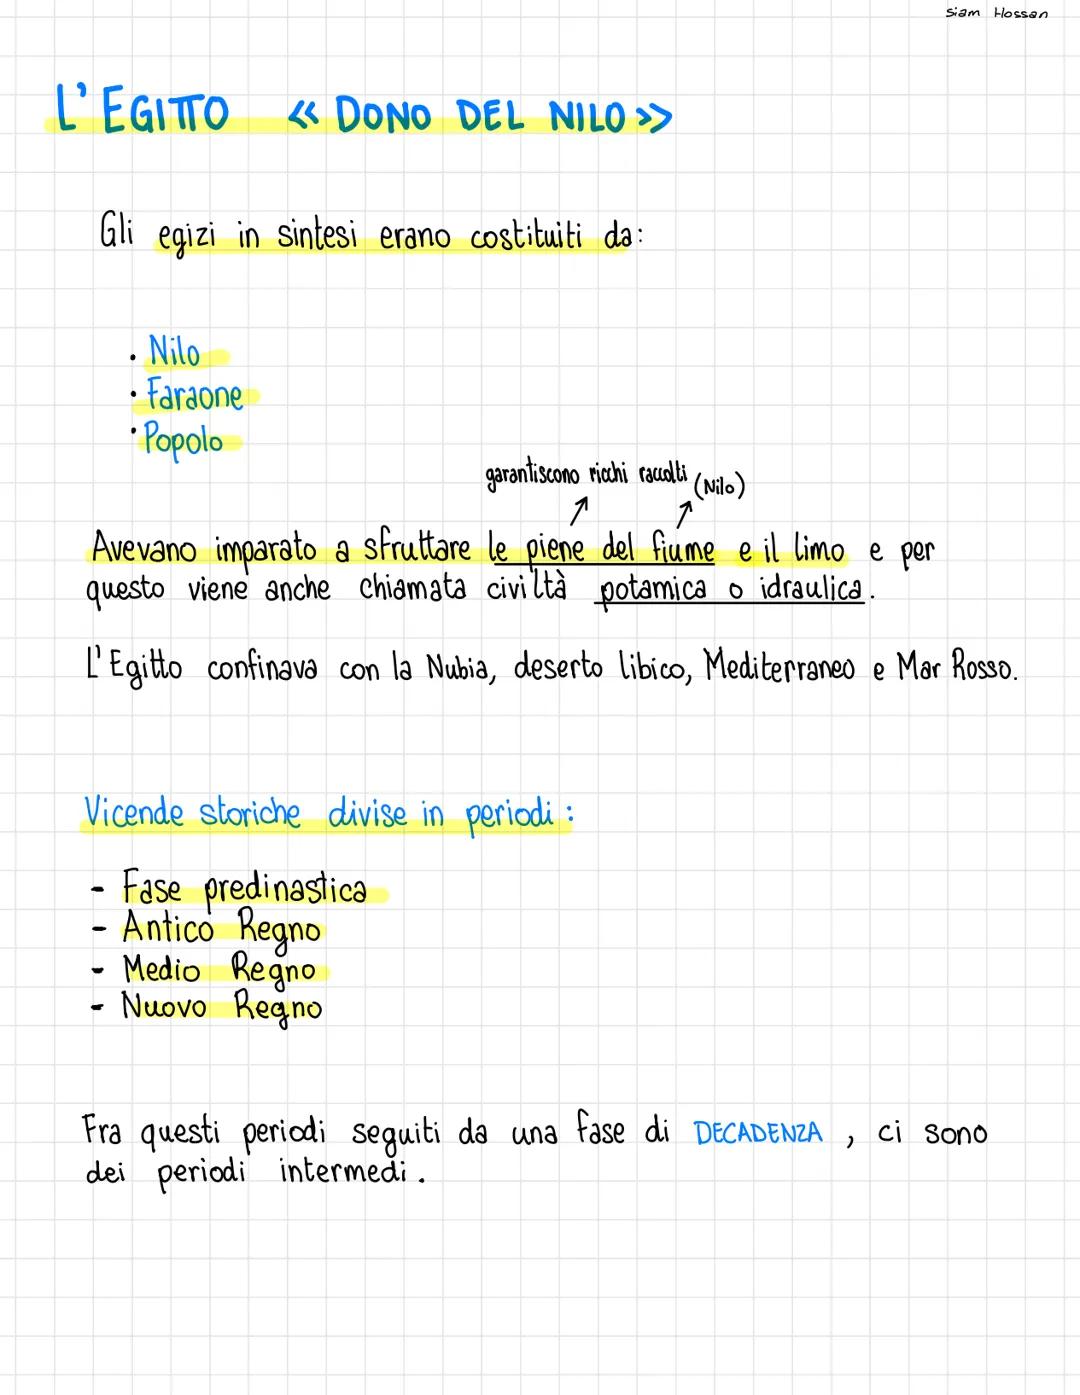 Siam Hossan
L'EGITTO « DONO DEL NILO »
Gli egizi in sintesi erano costituiti da:
• Nilo
• Faraone
• Popolo
garantiscono ricchi raccolti (Nilo)
Avevano imparato a sfruttare le piene del fiume e il limo e per
questo viene anche chiamata civiltà potamica o idraulica.
L'Egitto confinava con la Nubia, deserto libico, Mediterraneo e Mar Rosso.
Vicende storiche divise in periodi:
- Fase predinastica
- Antico Regno
- Medio Regno
- Nuovo Regno
Fra questi periodi seguiti da una fase di DECADENZA, ci sono
dei periodi intermedi.